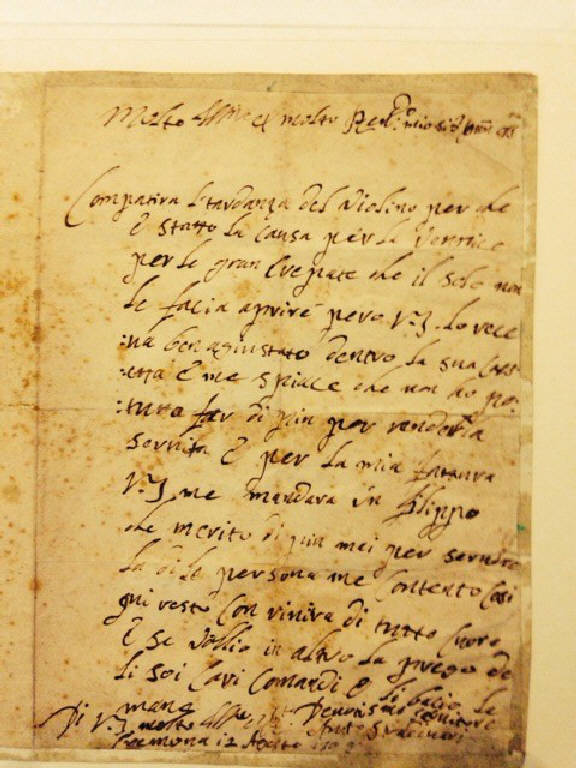 Molto Ill.re et molto Rev.do mio Sig.
Compatira la tardanza del violino per che
è statto la causa per la vernice
per le gran crepate che il sole non
le facia aprire pero V.S. lo rece
:ua ben agiustato dentro la sua cas
:etta è me spiace che non ho po:
:tuto far di piu per renderla
servita è per la mia fattura
V.S. me mandara in filippo
che merito di piu mei per servire
la di le persona me contento cosi
qui resto con riviva di tutto cuore
è se vallio in altro la prego de
li soi cari comandi è li bacio le
mane
Di V.S. molto Ill.re Devotismo Servitore
Cremona 12 Agosto Anto. Stradivari